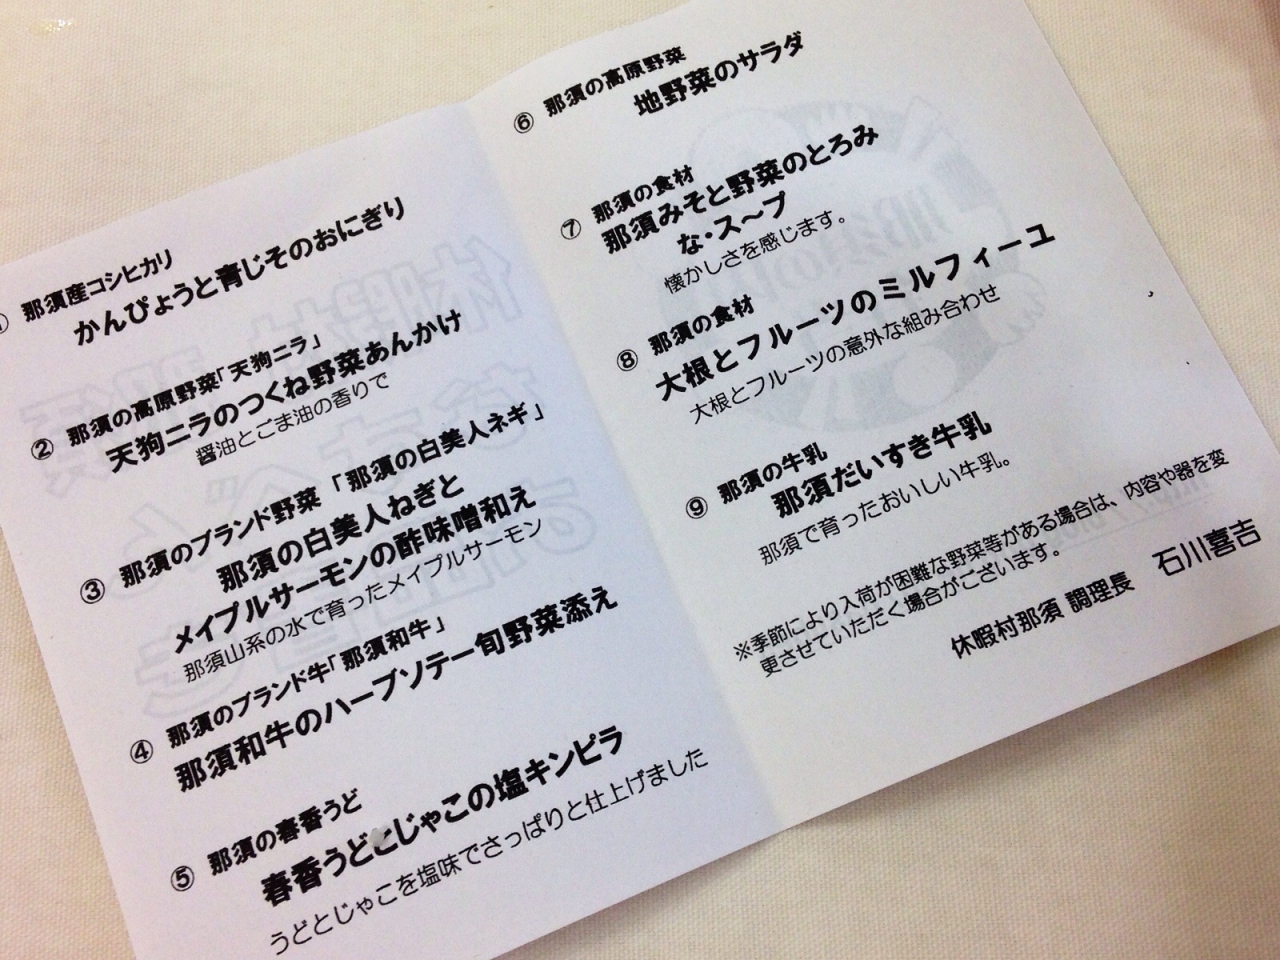 ① 那須産コシヒカリ
かんぴょうと青じそのおにぎり
② 那須の高原野菜「天狗ニラ」
天狗ニラのつくね野菜あんかけ
醤油とごま油の香りで
③ 那須のブランド野菜「那須の白美人ネギ」
那須の白美人ねぎと
メイプルサーモンの酢味噌和え
那須山系の水で育ったメイプルサーモン
④ 那須のブランド牛「那須和牛」
那須和牛のハーブソテー旬野菜添え
⑤ 那須の春香うど
春香うどとじゃこの塩キンピラ
うどとじゃこを塩味でさっぱりと仕上げました
⑥ 那須の高原野菜
地野菜のサラダ
⑦ 那須の食材
那須みそと野菜のとろみ
な・ス〜プ
懐かしさを感じます。
⑧ 那須の食材
大根とフルーツのミルフィーユ
大根とフルーツの意外な組み合わせ
⑨ 那須の牛乳
那須だいすき牛乳
那須で育ったおいしい牛乳。
※季節により入荷が困難な野菜等がある場合は、内容や器を変
更させていただく場合がございます。
休暇村那須 調理長 石川喜吉